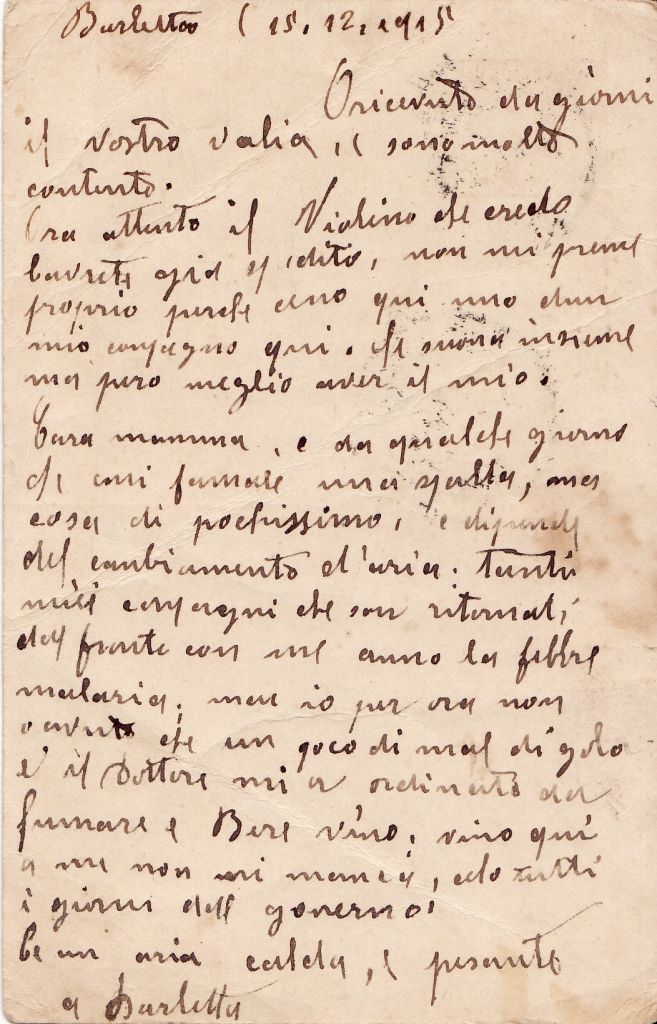 Barletta ( 15. 12. 1915
O ricevuto da giorni
il vostro valia, e sono molto
contento.
Ora attento il Violino che credo
lavrete gia spedito, non mi preme
proprio perche ceno qui uno dun
mio conpagno qui. che suona insieme
ma pero meglio aver il mio.
Cara mamma, e da qualche giorno
che mi fa male una spalla, ma
cosa di pochissimo, e dipende
del canbiamento d'aria. tanti
miei conpagni che son ritornati
dal fronte con me anno la febbre
malaria, ma io per ora non
o avuto che un poco di mal di gola
e il Dottore mi a ordinato da
fumare e Bere vino, vino qui
a me non mi manca, celo tutti
i giorni dell governo.
Ce un aria calda, e pesante
a Barletta